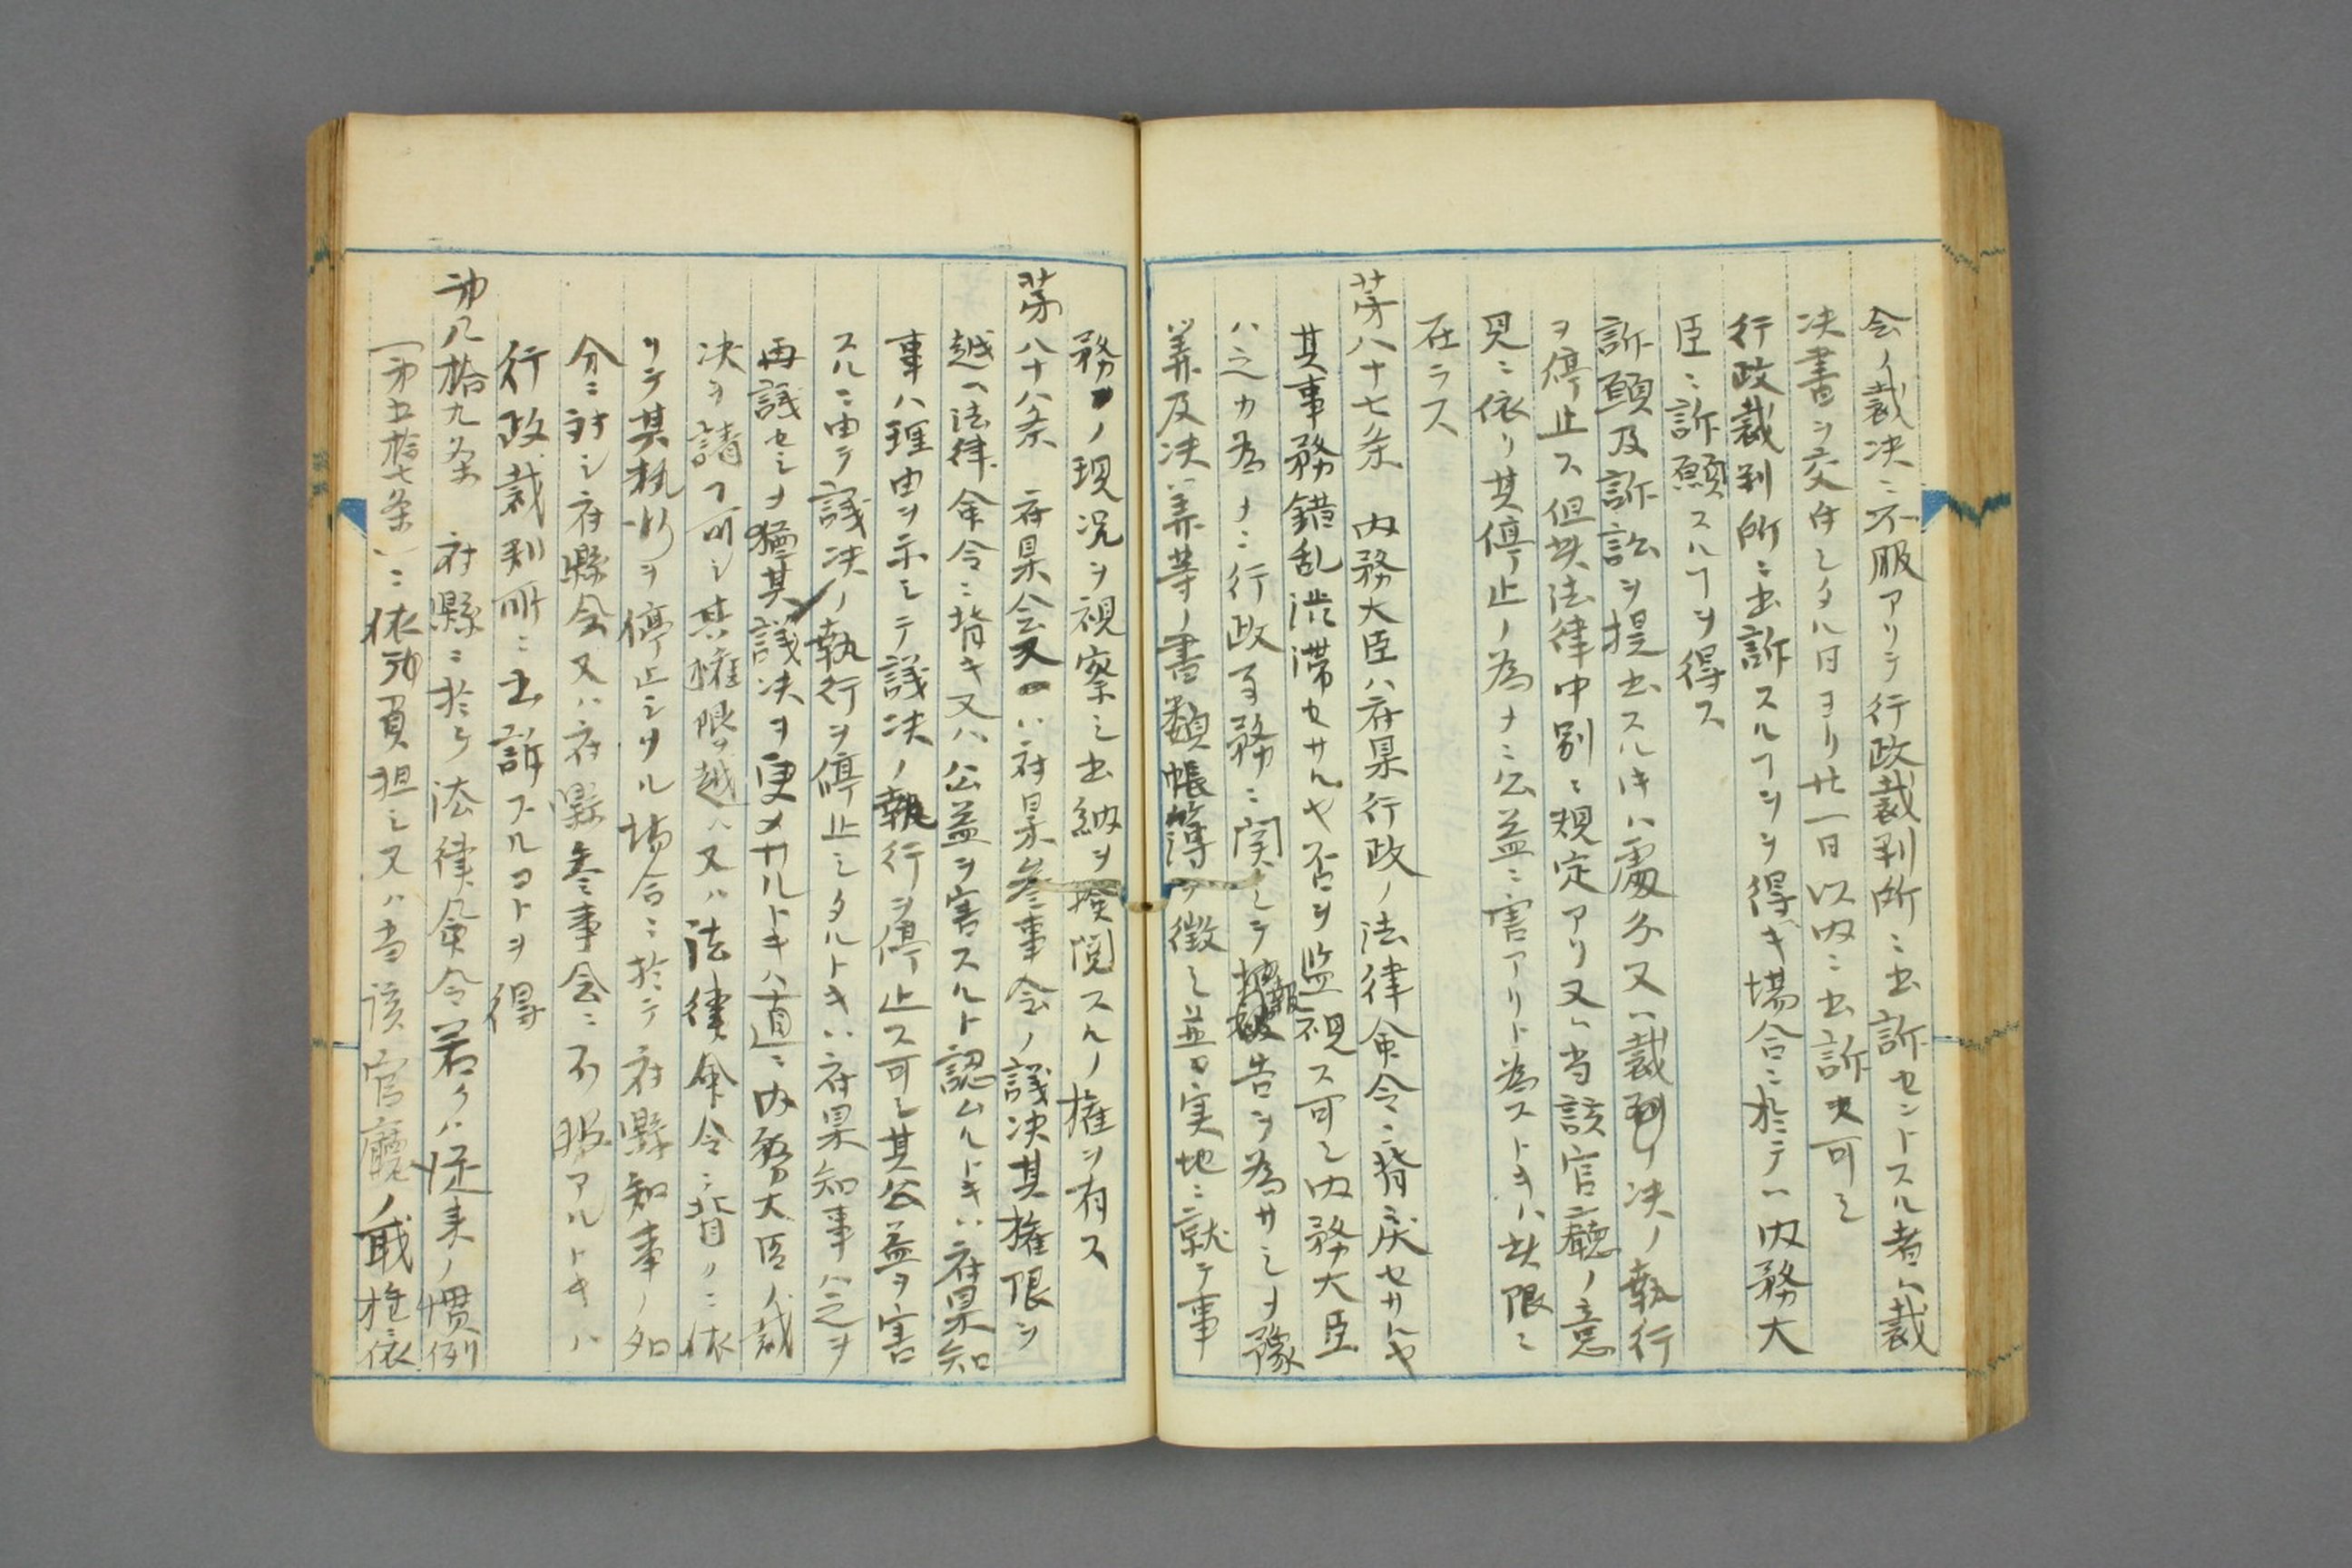 会ノ裁决ニ不服アリテ行政裁判所ニ出訴セントスル者ハ裁
决書ヲ交付シタル日ヨリ廿一日以内ニ出訴ス可シ
行政裁判所ニ出訴スルヿヲ得ザ場合ニ於テハ内務大
臣ニ訴願スルヿヲ得ス
訴願及訴訟ヲ提出スルトキハ處分又ハ裁决ノ執行
ヲ停止ス但此法律中別ニ規定アリ又ハ当該官廳ノ意
見ニ依リ其停止ノ為メニ公益ニ害アリト為ストキハ此限ニ
在ラス
第八十七条 内務大臣ハ府県行政ノ法律命令ニ背戻セサルヤ
其事務錯乱渋滞セサルヤ否ヲ監視ス可シ内務大臣
ハ之カ為メニ行政事務ニ関シテ報告ヲ為サシメ豫
算及决算等ノ書類帳簿ヲ徴シ並ニ実地ニ就テ事
務ノ現况ヲ視察シ出納ヲ検閲スルノ権ヲ有ス
第八十八条 府県会又ハ府県参事会ノ議决其権限ヲ
越ヘ法律命令ニ背キ又ハ公益ヲ害スルト認ムルトキハ府県知
事ハ理由ヲ示シテ議决ノ執行ヲ停止ス可シ其公益ヲ害
スルニ由テ議决ノ執行ヲ停止シタルトキハ府県知事ハ之ヲ
再議セシメ猶其議决ヲ更メサルトキハ直ニ内務大臣ノ裁
决ヲ請フ可シ其権限ヲ越ヘ又ハ法律命令ニ背クニ依
リテ其執行ヲ停止シタル場合ニ於テ府縣知事ノ処
分ニ対シ府縣会又ハ府縣参事会ニ不服アルトキハ
行政裁判所ニ出訴スルコトヲ得
第八拾九条 府縣ニ於テ法律命令若クハ従来ノ慣例
(第五拾七条)ニ依テ負担シ又ハ当該官廳ノ職権依